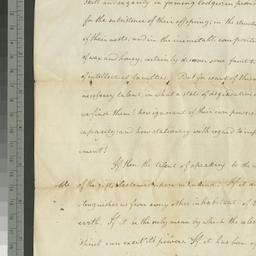 skill and sagacity in forming lodges, in provi
for the subsistence of their offspring; in the struct
of their nests; and in the inimitable composit
of wax and honey; certainly discover some faint t
of intellectual faculties. But for want of this
necessary talent, in what a state of degradation
we find them! how ignorant of their own powers
capacity; and how stationary with regard to imp
ment!
If then the talent of speaking be the m
of the gifts bestowed upon mankind: If it
distinguishes us from every other inhabitant of
earth. If it be the only mean by which the
mind can exert its powers. If it has been